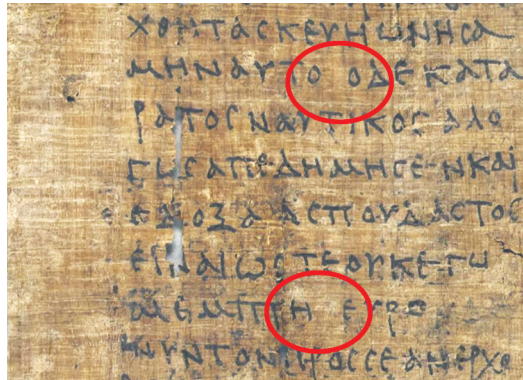 ΧΟΝΤΑϹΚΕΥΗΩΝΗϹΑ
ΜΗΝΑΥΤΟ ΟΔΕΚΑΤΑ
ΡΑΤΟϹΝΑΥΤΙΚΟϹΑΛΟ
ΓΩϹΑΠΕΔΗΜΗϹΕΝΚΑΙ
ΕΔΟΞΑΑϹΠΟΥΔΑϹΤΟϹ
ΕΙΝΑΙΩϹΤΕΟΥΚΕΓΩ
ΜΕΜΠΤΗ ΕΥΡΟ
ΝΥΝΤΟΝΠΡΟϹϹΕΑΝΕΡΧΟ